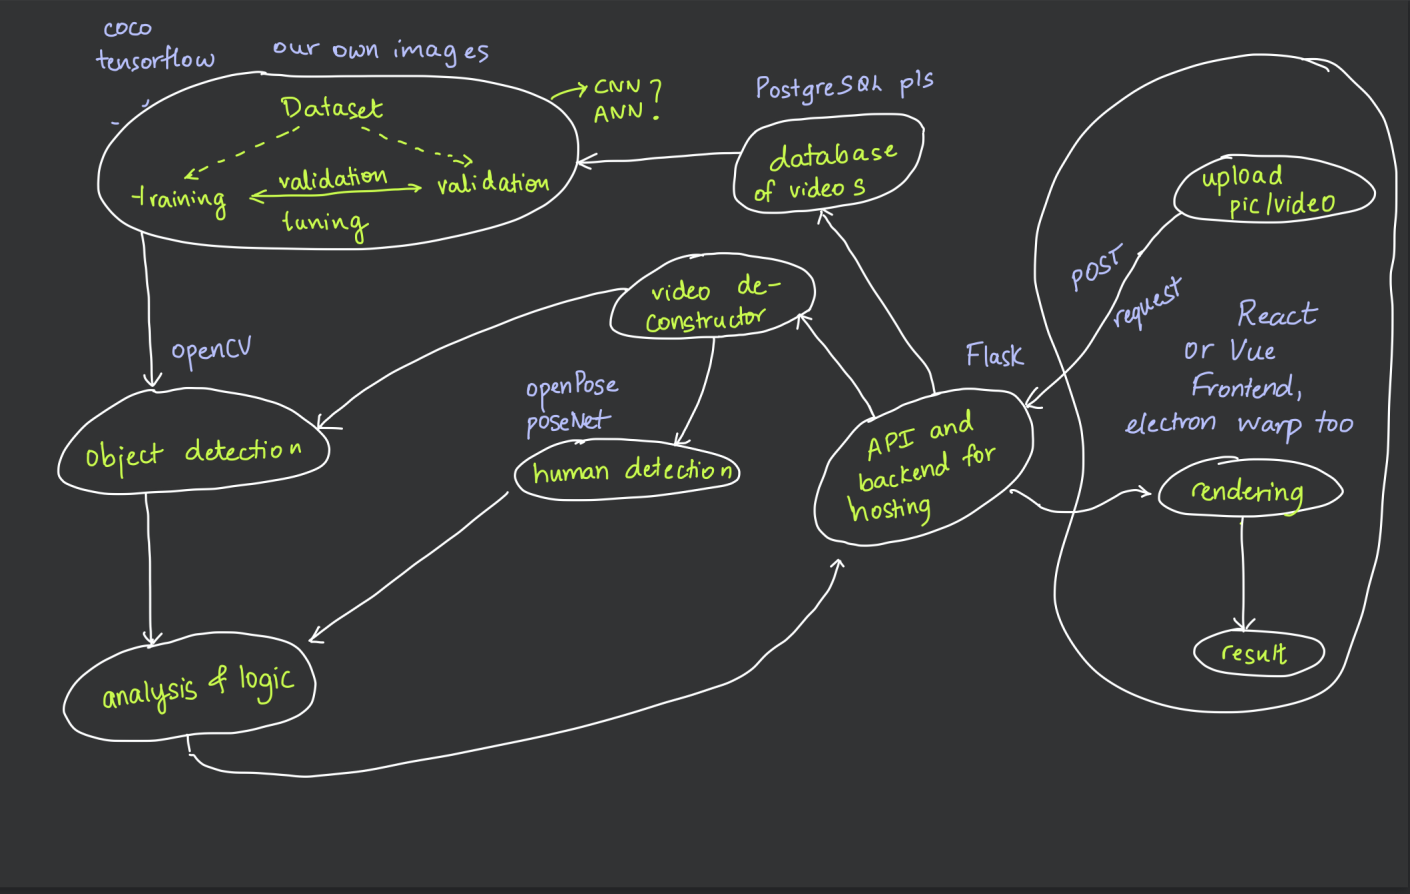 coco
tensorflow
our own images
Dataset
training
validation
tuning
validation
CNN ?
ANN ?
PostgreSQL pls
database
of videos
upload
pic/video
POST
request
React
or Vue
Frontend,
electron warp too
video de-
constructor
Flask
openCV
openPose
poseNet
object detection
human detection
API and
backend for
hosting
rendering
result
analysis & logic